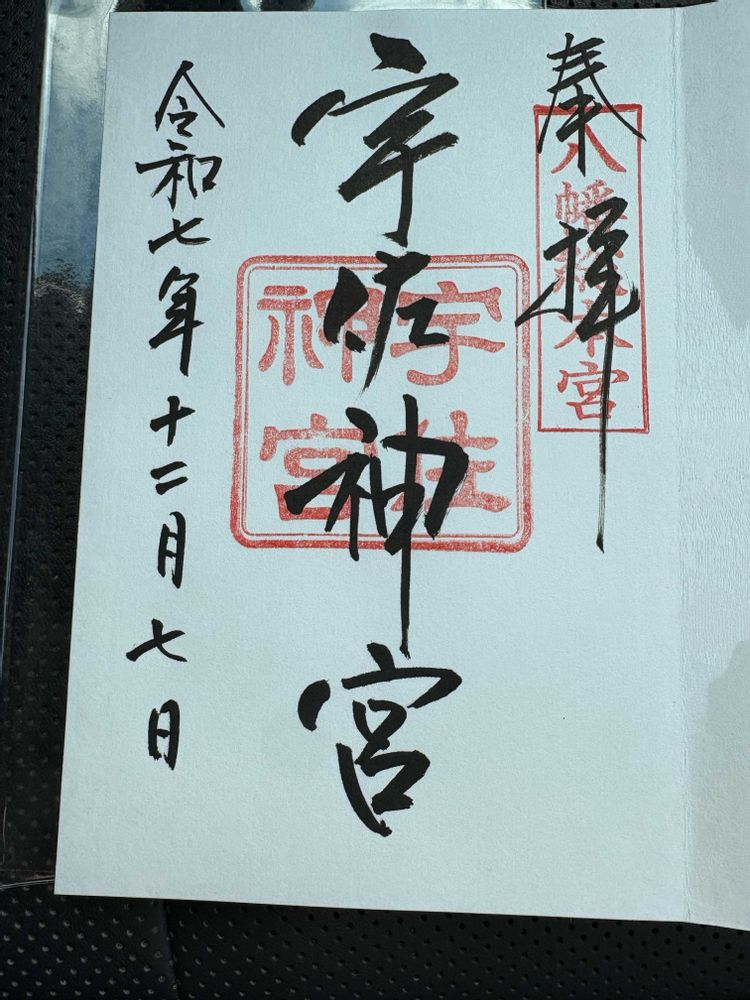 奉拝
八幡総本宮
宇佐神宮
宇佐
神宮
令和七年十二月七日